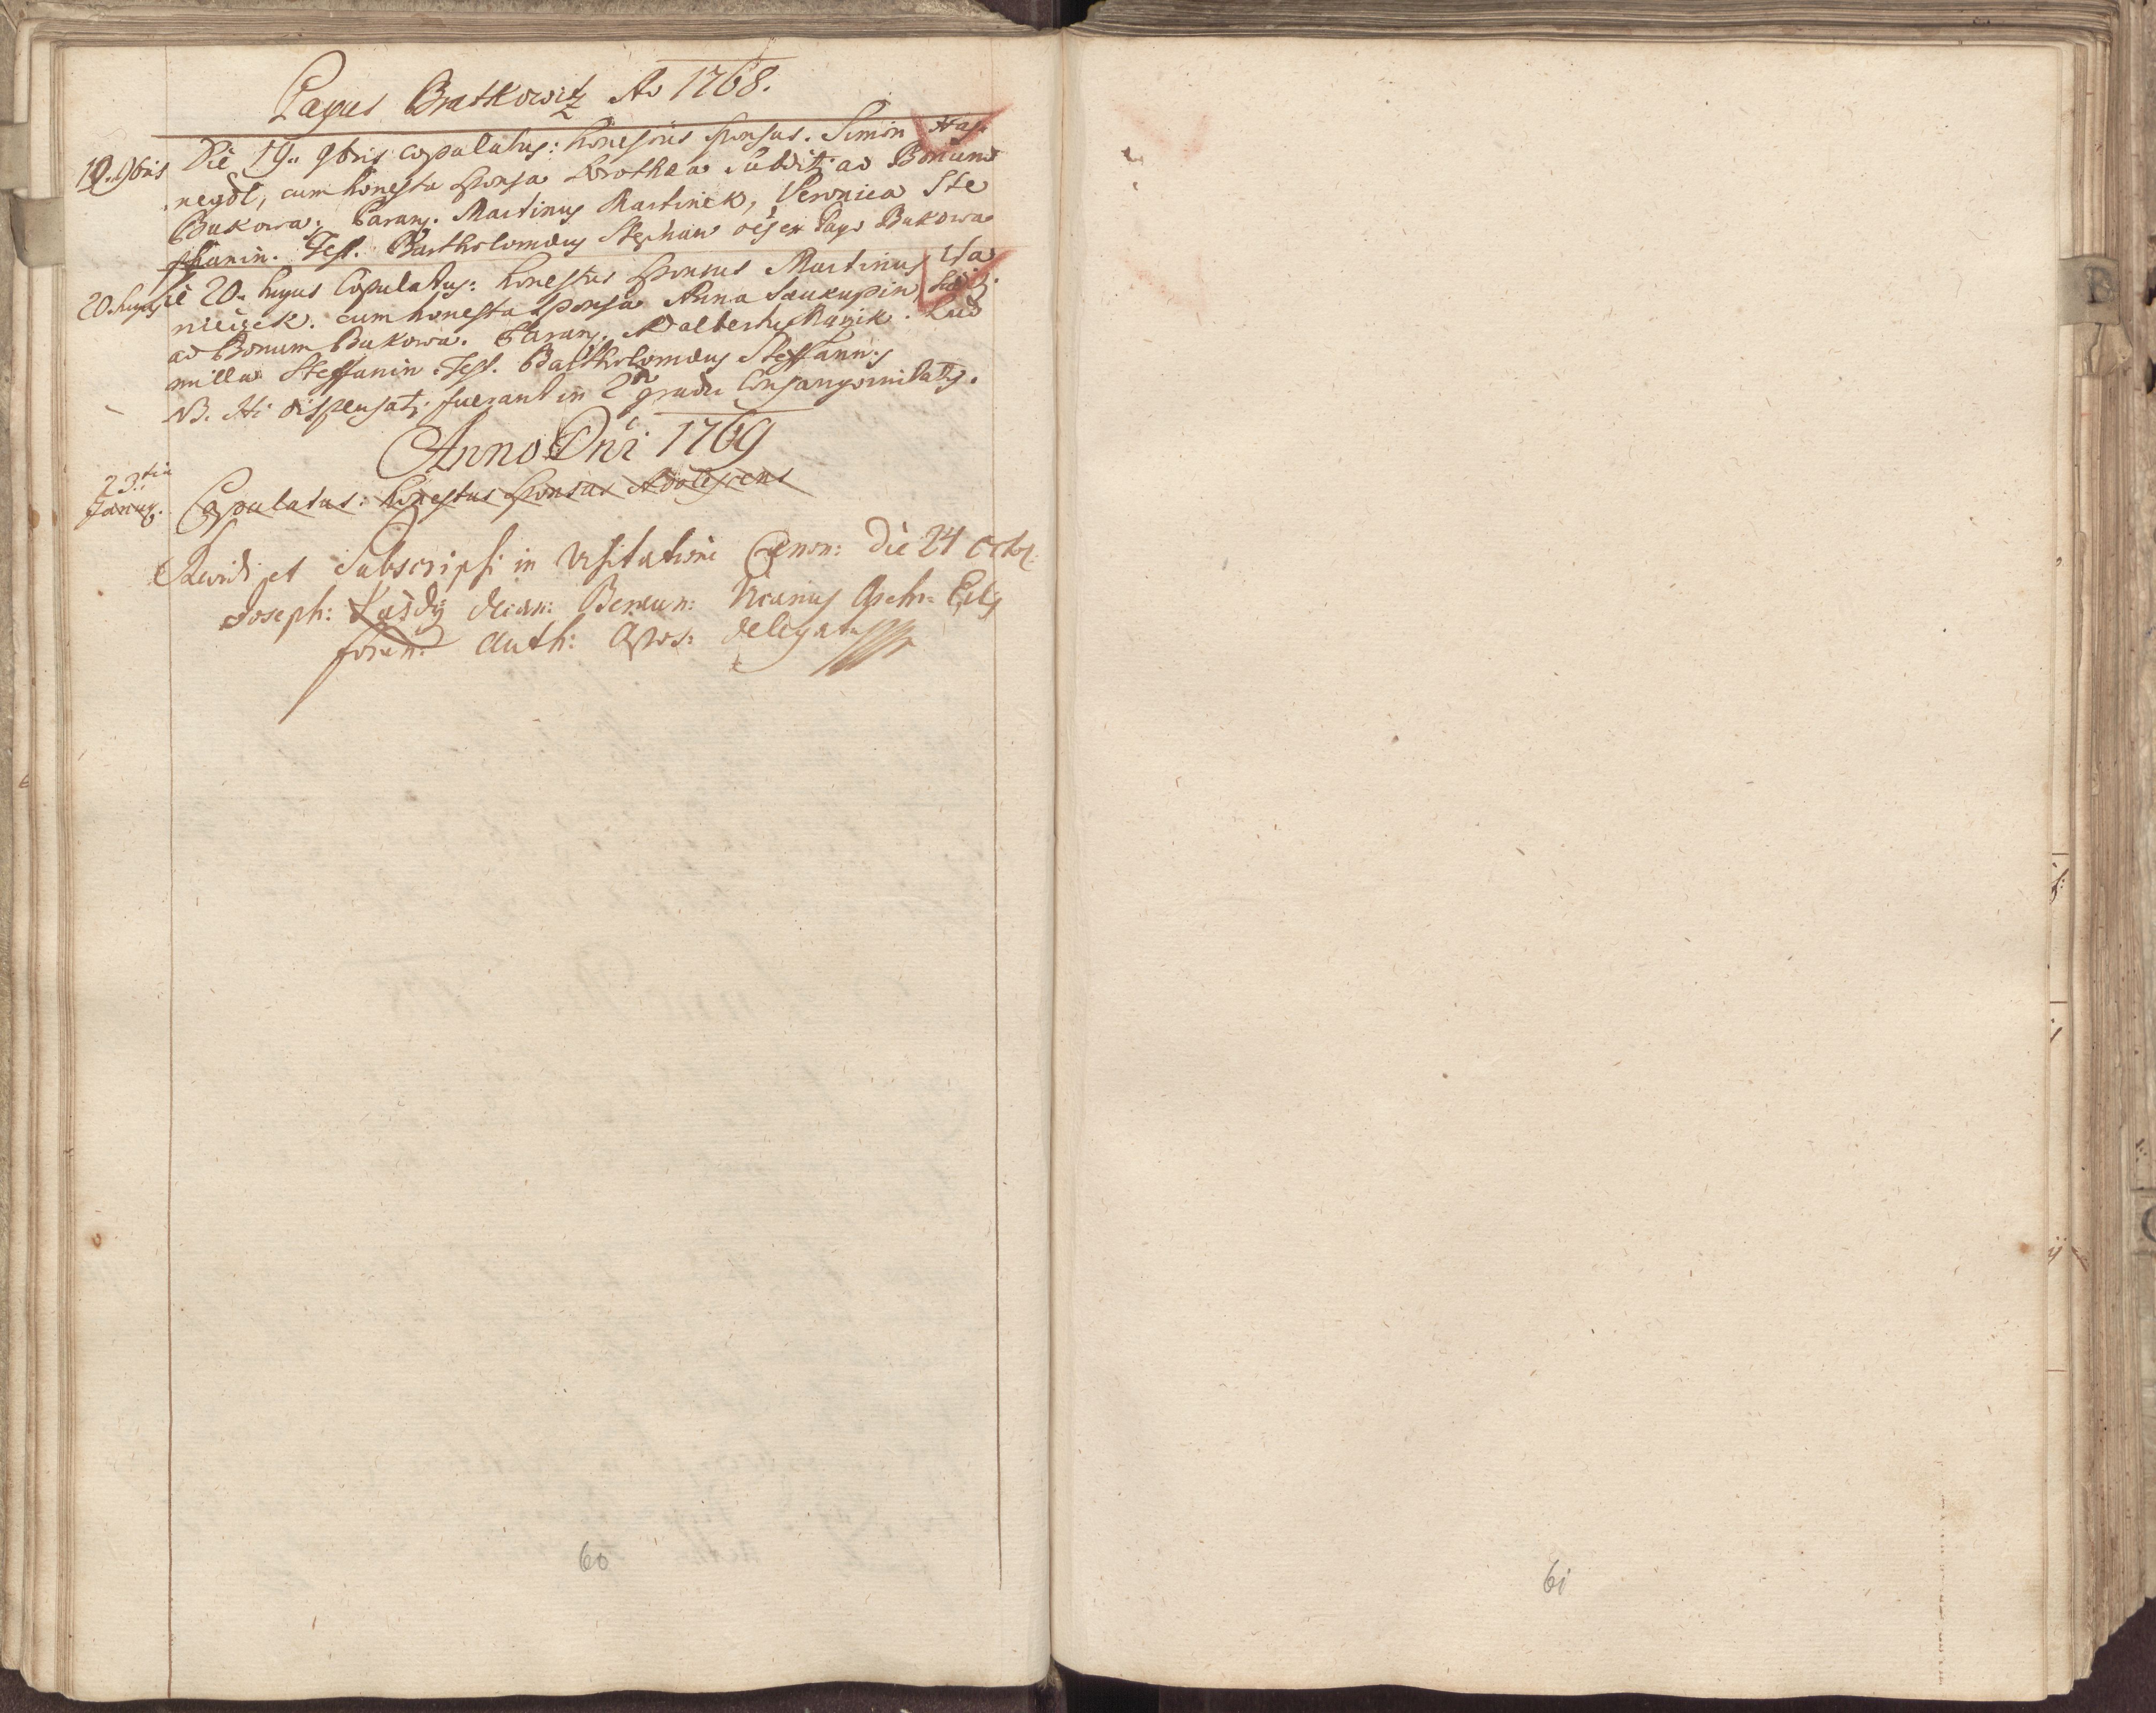 Pagus Bratkowitz Ao 1768.
19. 9bris Die 19. 9bris copulatus: honestus sponsus. Simon Has-
neydl, cum honesta sponsa Dorothea Subditi ad Bonum
Bukowa; Paran. Martinus Martinek, Veronica Ste
phanin. Test. Bartholomæus Stephan oes ex Pago Bukowa
20. hujus Die 20. hujus Copulatus: honestus sponsus Martinus
cum honesta sponsa Anna Saukupin Subditi
ad Bonum Bukowa. Paran. Adalbertus Lud
milla Steffanin. Test. Bartholomæus Steffan.
NB. Hi dispensati fuerant in 2do gradu Consangvinitatis.
Anno Dni 1769
23.tia
Januar.
Copulatus: honestus sponsus Adolescens
Revidi et Subscripsi in Visitatione Canon: Die 24 Octobr:
Joseph: Decan: Beraun: Vicarius
foran: Auth: Apos: delegatus
60
61